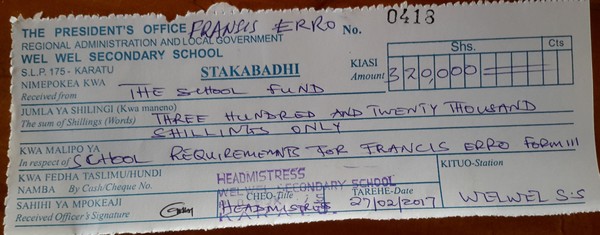 THE PRESIDENT'S OFFICE FRANSIS ERRO No. 0413
REGIONAL ADMINISTRATION AND LOCAL GOVERNMENT
WEL WEL SECONDARY SCHOOL
S.L.P. 175 - KARATU
STAKABADHI
KIASI
Amount
Shs. Cts
320,000
NIMEPOKEA KWA
Received from THE SCHOOL FUND
JUMLA YA SHILINGI (Kwa maneno)
The sum of Shillings (Words) THREE HUNDRED AND TWENTY THOUSAND
SHILLINGS ONLY
KWA MALIPO YA
In respect of SCHOOL REQUIREMENTS FOR FRANCIS ERRO FORM III
KWA FEDHA TASLIMU/HUNDI
NAMBA By Cash/Cheque No.
HEADMISTRESS
WEL WEL SECONDARY SCHOOL
SAHIHI YA MPOKEAJI
Received Officer's Signature
CHEO-Title
HEADMISTRESS
TAREHE-Date
27/02/2017
KITUO-Station
WELWEL S.S